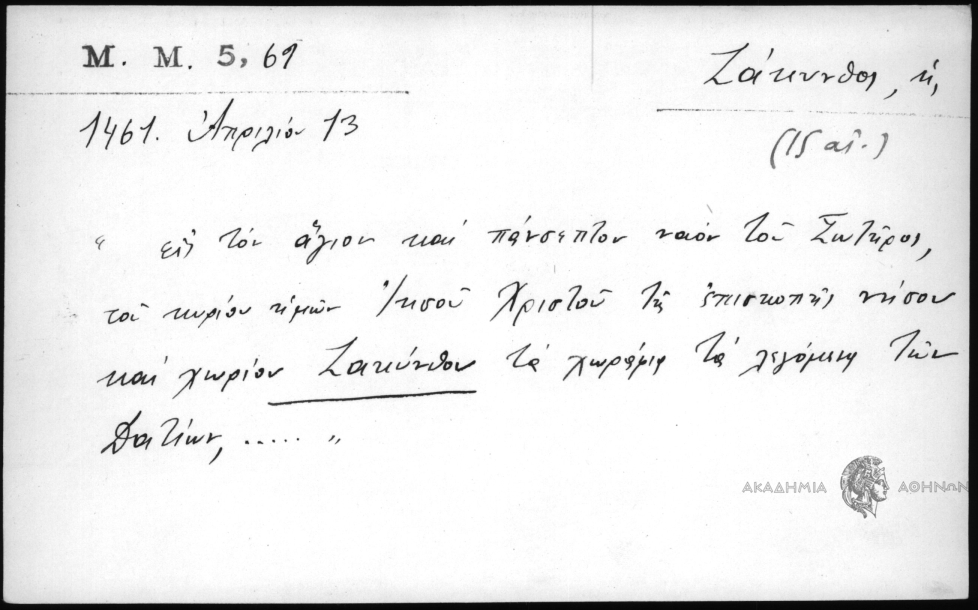 Μ. Μ. 5, 69
Ζάκυνθος, ἡ,
1461. Ἀπριλίου 13
(15 αἰ.)
" εἰς τόν ἅγιον καί πάνσεπτον ναόν τοῦ Σωτῆρος,
τοῦ κυρίου ἡμῶν Ἰησοῦ Χριστοῦ τῆς ἐπισκοπῆς νήσου
καί χωρίου Ζακύνθου τά χωράφια τά λεγόμενα τῶν
Δατίων, ..... "
ΑΚΑΔΗΜΙΑ ΑΘΗΝΩΝ